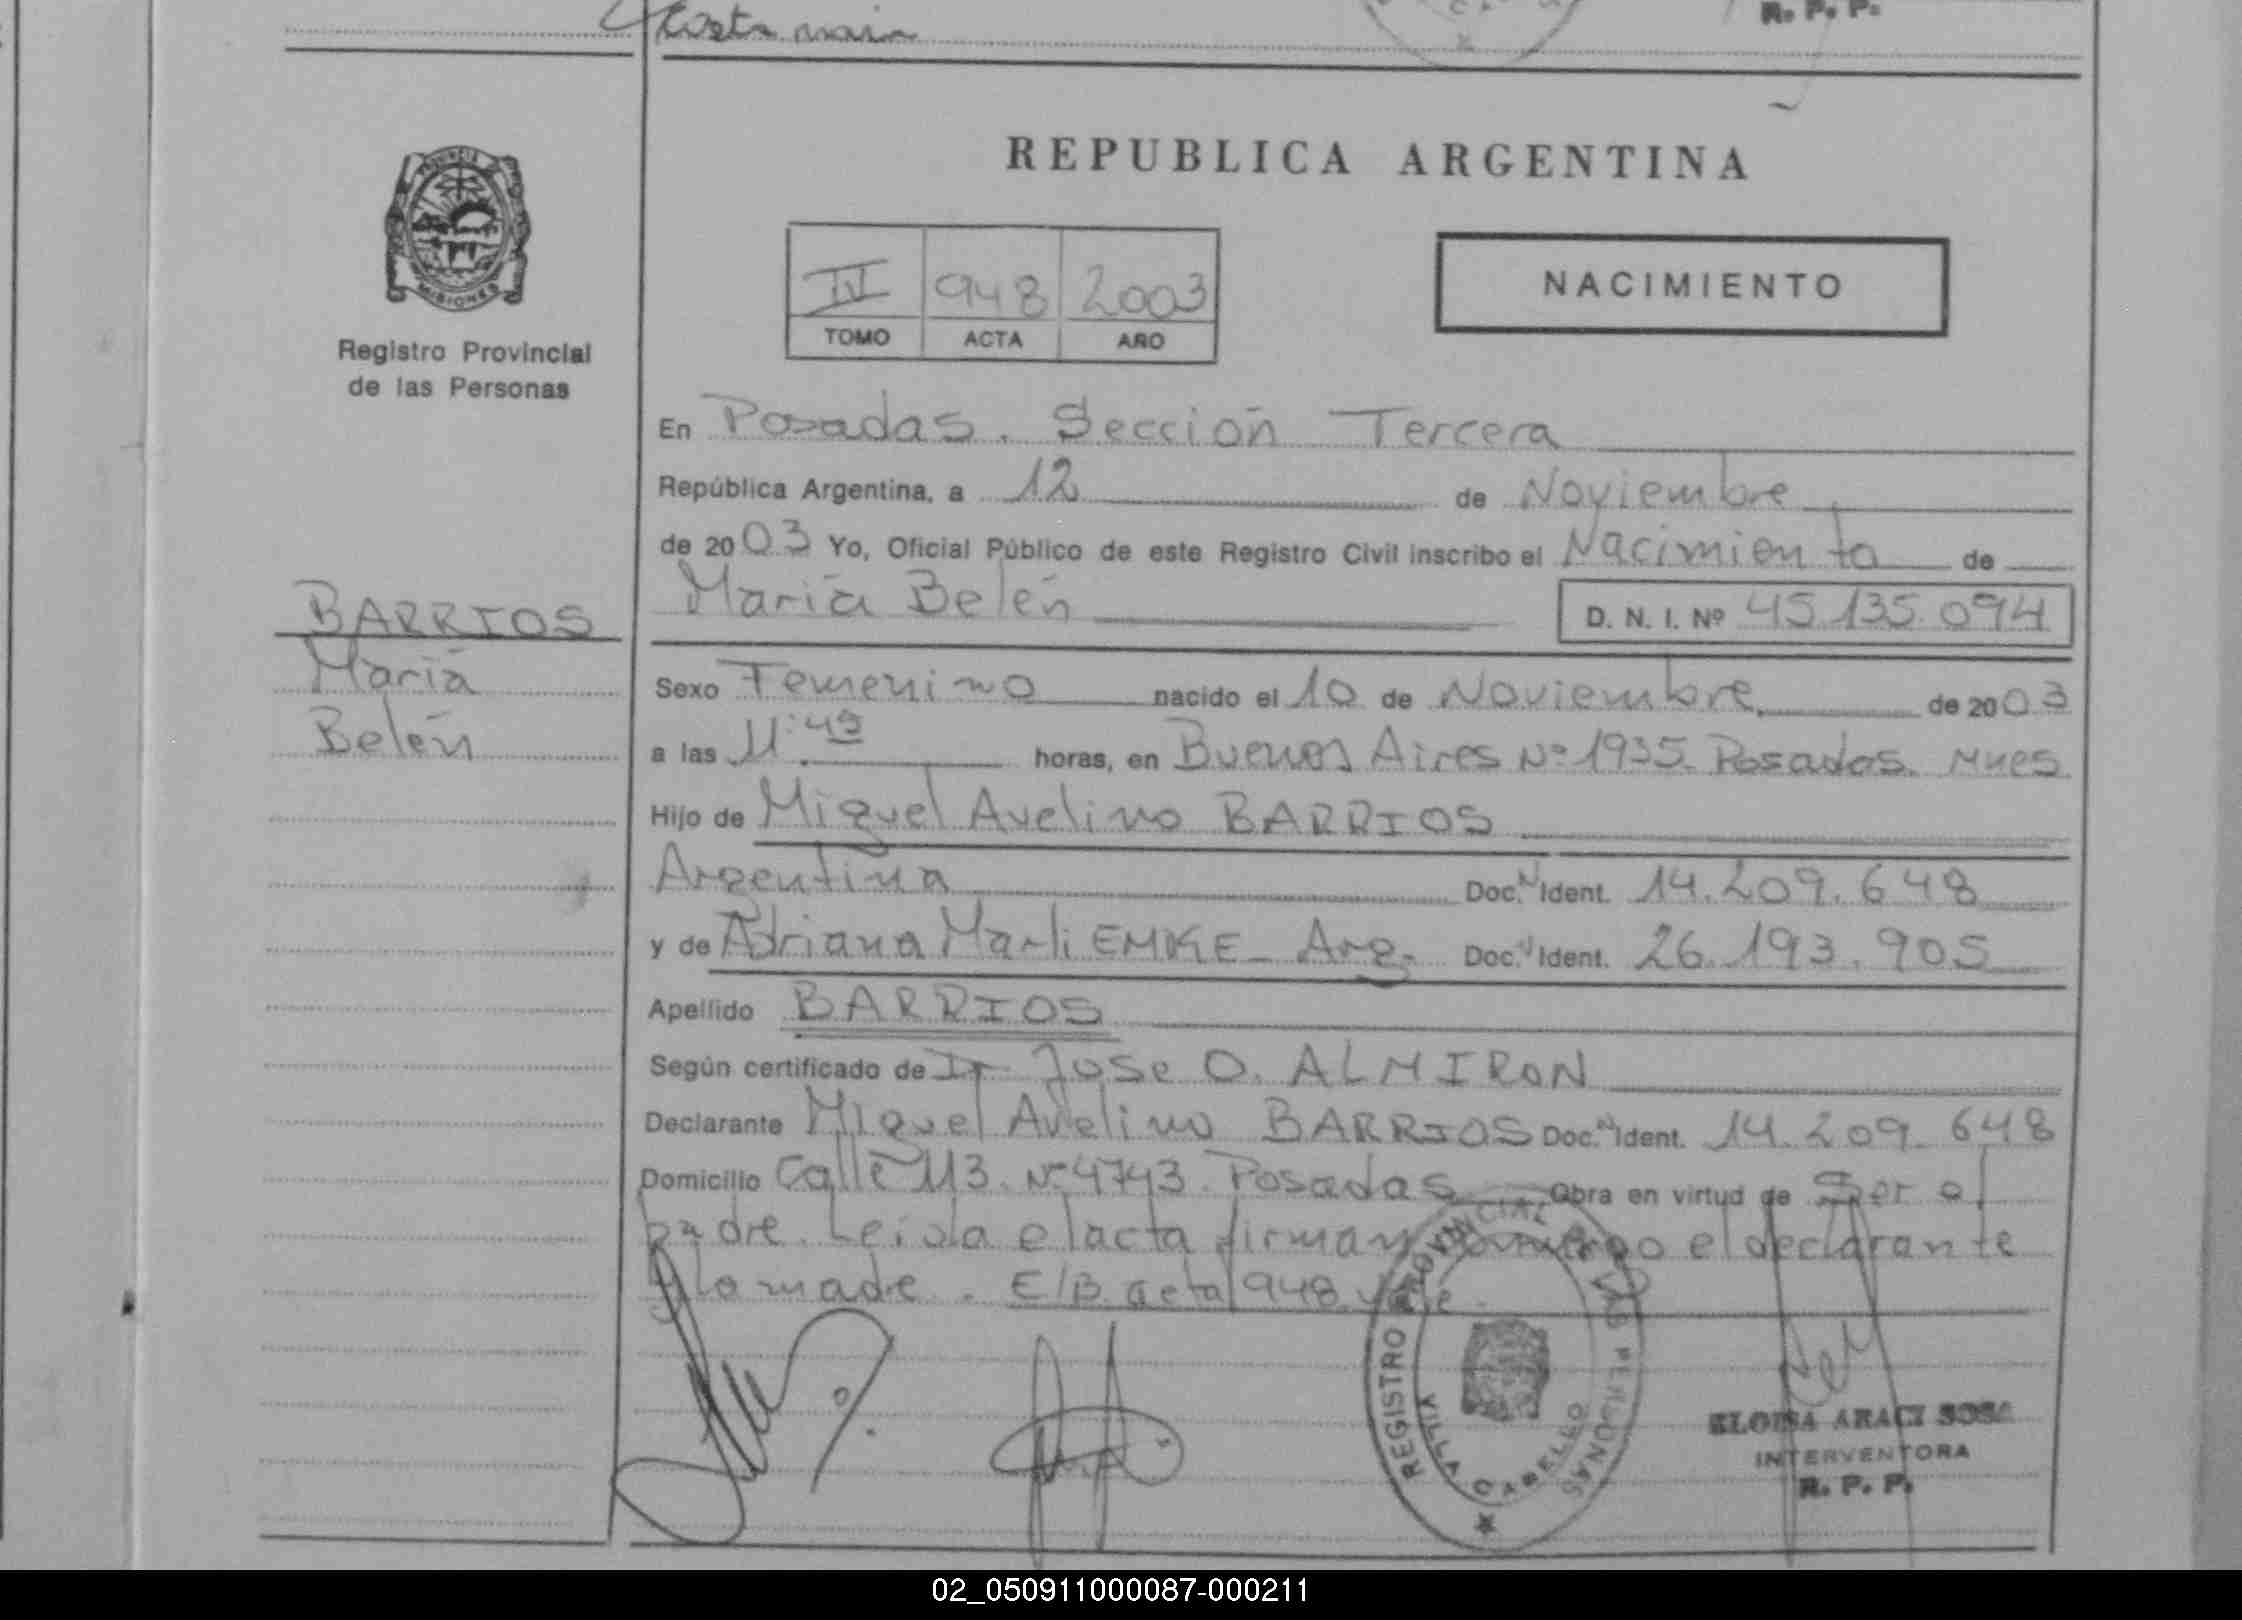 R. P. P.
PROVINCIA
MISIONES
Registro Provincial
de las Personas
REPUBLICA ARGENTINA
IV 948 2003
TOMO ACTA AÑO
NACIMIENTO
En Posadas. Sección Tercera
República Argentina, a 12 de Noviembre
de 2003 Yo, Oficial Público de este Registro Civil inscribo el Nacimiento de
María Belén D. N. I. Nº 45.135.094
BARRIOS
María
Belén
Sexo Femenino nacido el 10 de Noviembre de 2003
a las 11:49 horas, en Buenos Aires Nº 1935. Posadas. Mnes.
Hijo de Miguel Avelino BARRIOS
Argentina Doc. Ident. 14.209.648
y de Adriana Marli EMKE - Arg. Doc. Ident. 26.193.905
Apellido BARRIOS
Según certificado de Dr. Jose O. ALMIRON
Declarante Miguel Avelino BARRIOS Doc. Ident. 14.209.648
Domicilio Calle 113. Nº 4743. Posadas Obra en virtud de Ser el
padre. Leída el acta firman conmigo el declarante
y la madre. E/B. acta 948. Vale.
REGISTRO PROVINCIAL DE LAS PERSONAS
VILLA CABELLO
ELOISA ARACI SOSA
INTERVENTORA
R. P. P.
02_050911000087-000211